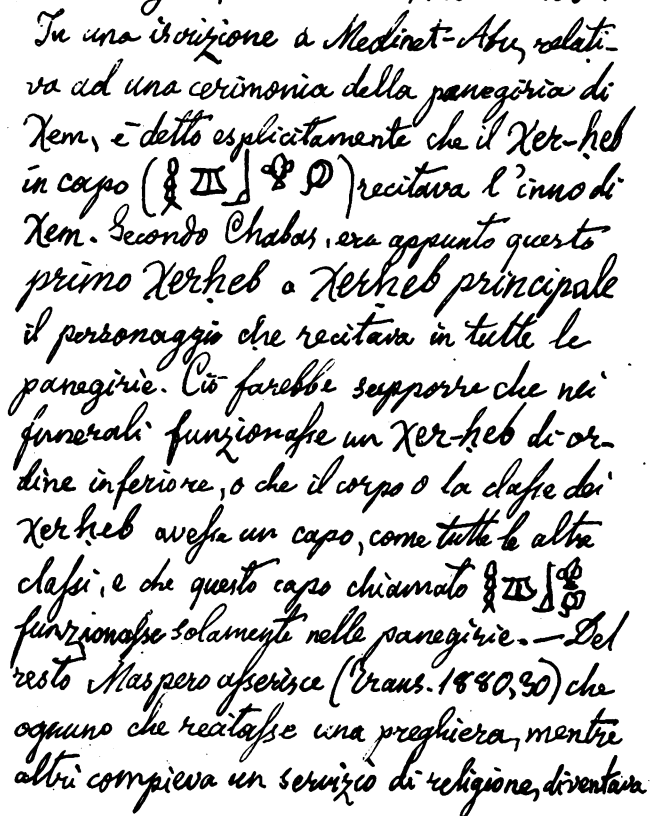 In una iscrizione a Medinet-Abu, relati-
va ad una cerimonia della panegiria di
Xem, è detto esplicitamente che il Xer-ḥeb
in capo (𓎛𓎱𓃀 ) recitava l'inno di
Xem. Secondo Chabas, era appunto questo
primo Xerḥeb o Xerḥeb principale
il personaggio che recitava in tutte le
panegirie. Ciò farebbe supporre che nei
funerali funzionasse un Xer-ḥeb di or-
dine inferiore, o che il corpo o la classe dei
Xerḥeb avesse un capo, come tutte le altre
classi, e che questo capo chiamato
funzionasse solamente nelle panegirie. — Del
resto Maspero asserisce (Trans. 1880,30) che
ognuno che recitasse una preghiera, mentre
altri compieva un servizio di religione, diventava